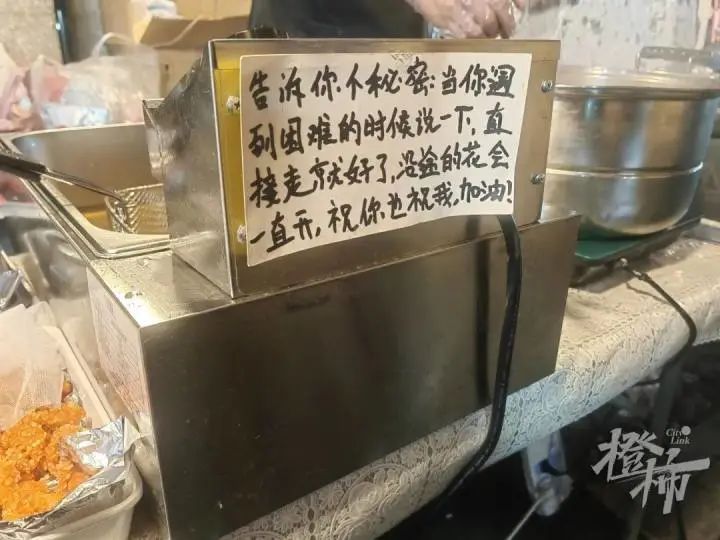 告诉你个秘密:当你遇
到困难的时候说一下,直
接走就好了,沿途的花会
一直开,祝你也祝我,加油!
City
Link
橙柿